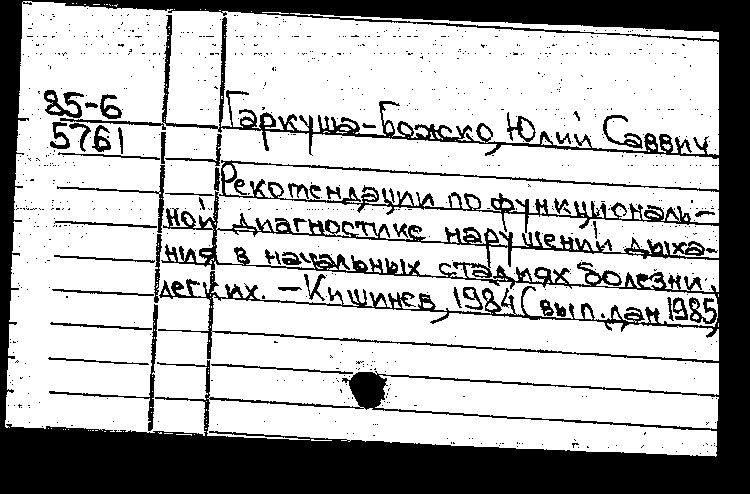 85-6
5761
Гаркуша-Божко, Юлий Саввич
Рекомендации по функциональ-
ной диагностике нарушений дыха-
ния в начальных стадиях болезни
легких. – Кишинев, 1984 (вып. дан. 1985)